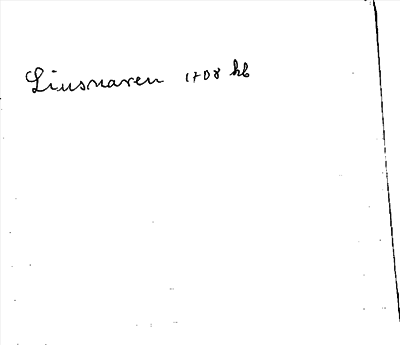 Liusnaren 1708 kb